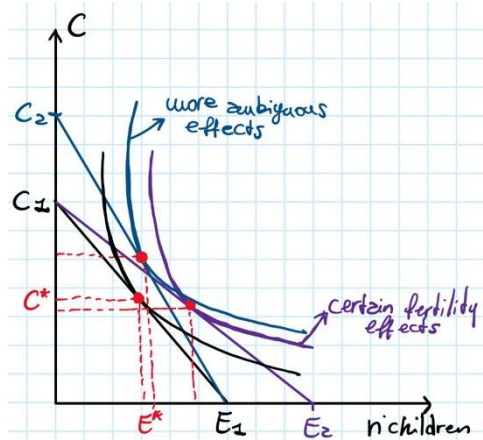 C
C2
more ambiguous
effects
C1
C*
certain fertility
effects
E*
E1
E2
n°children